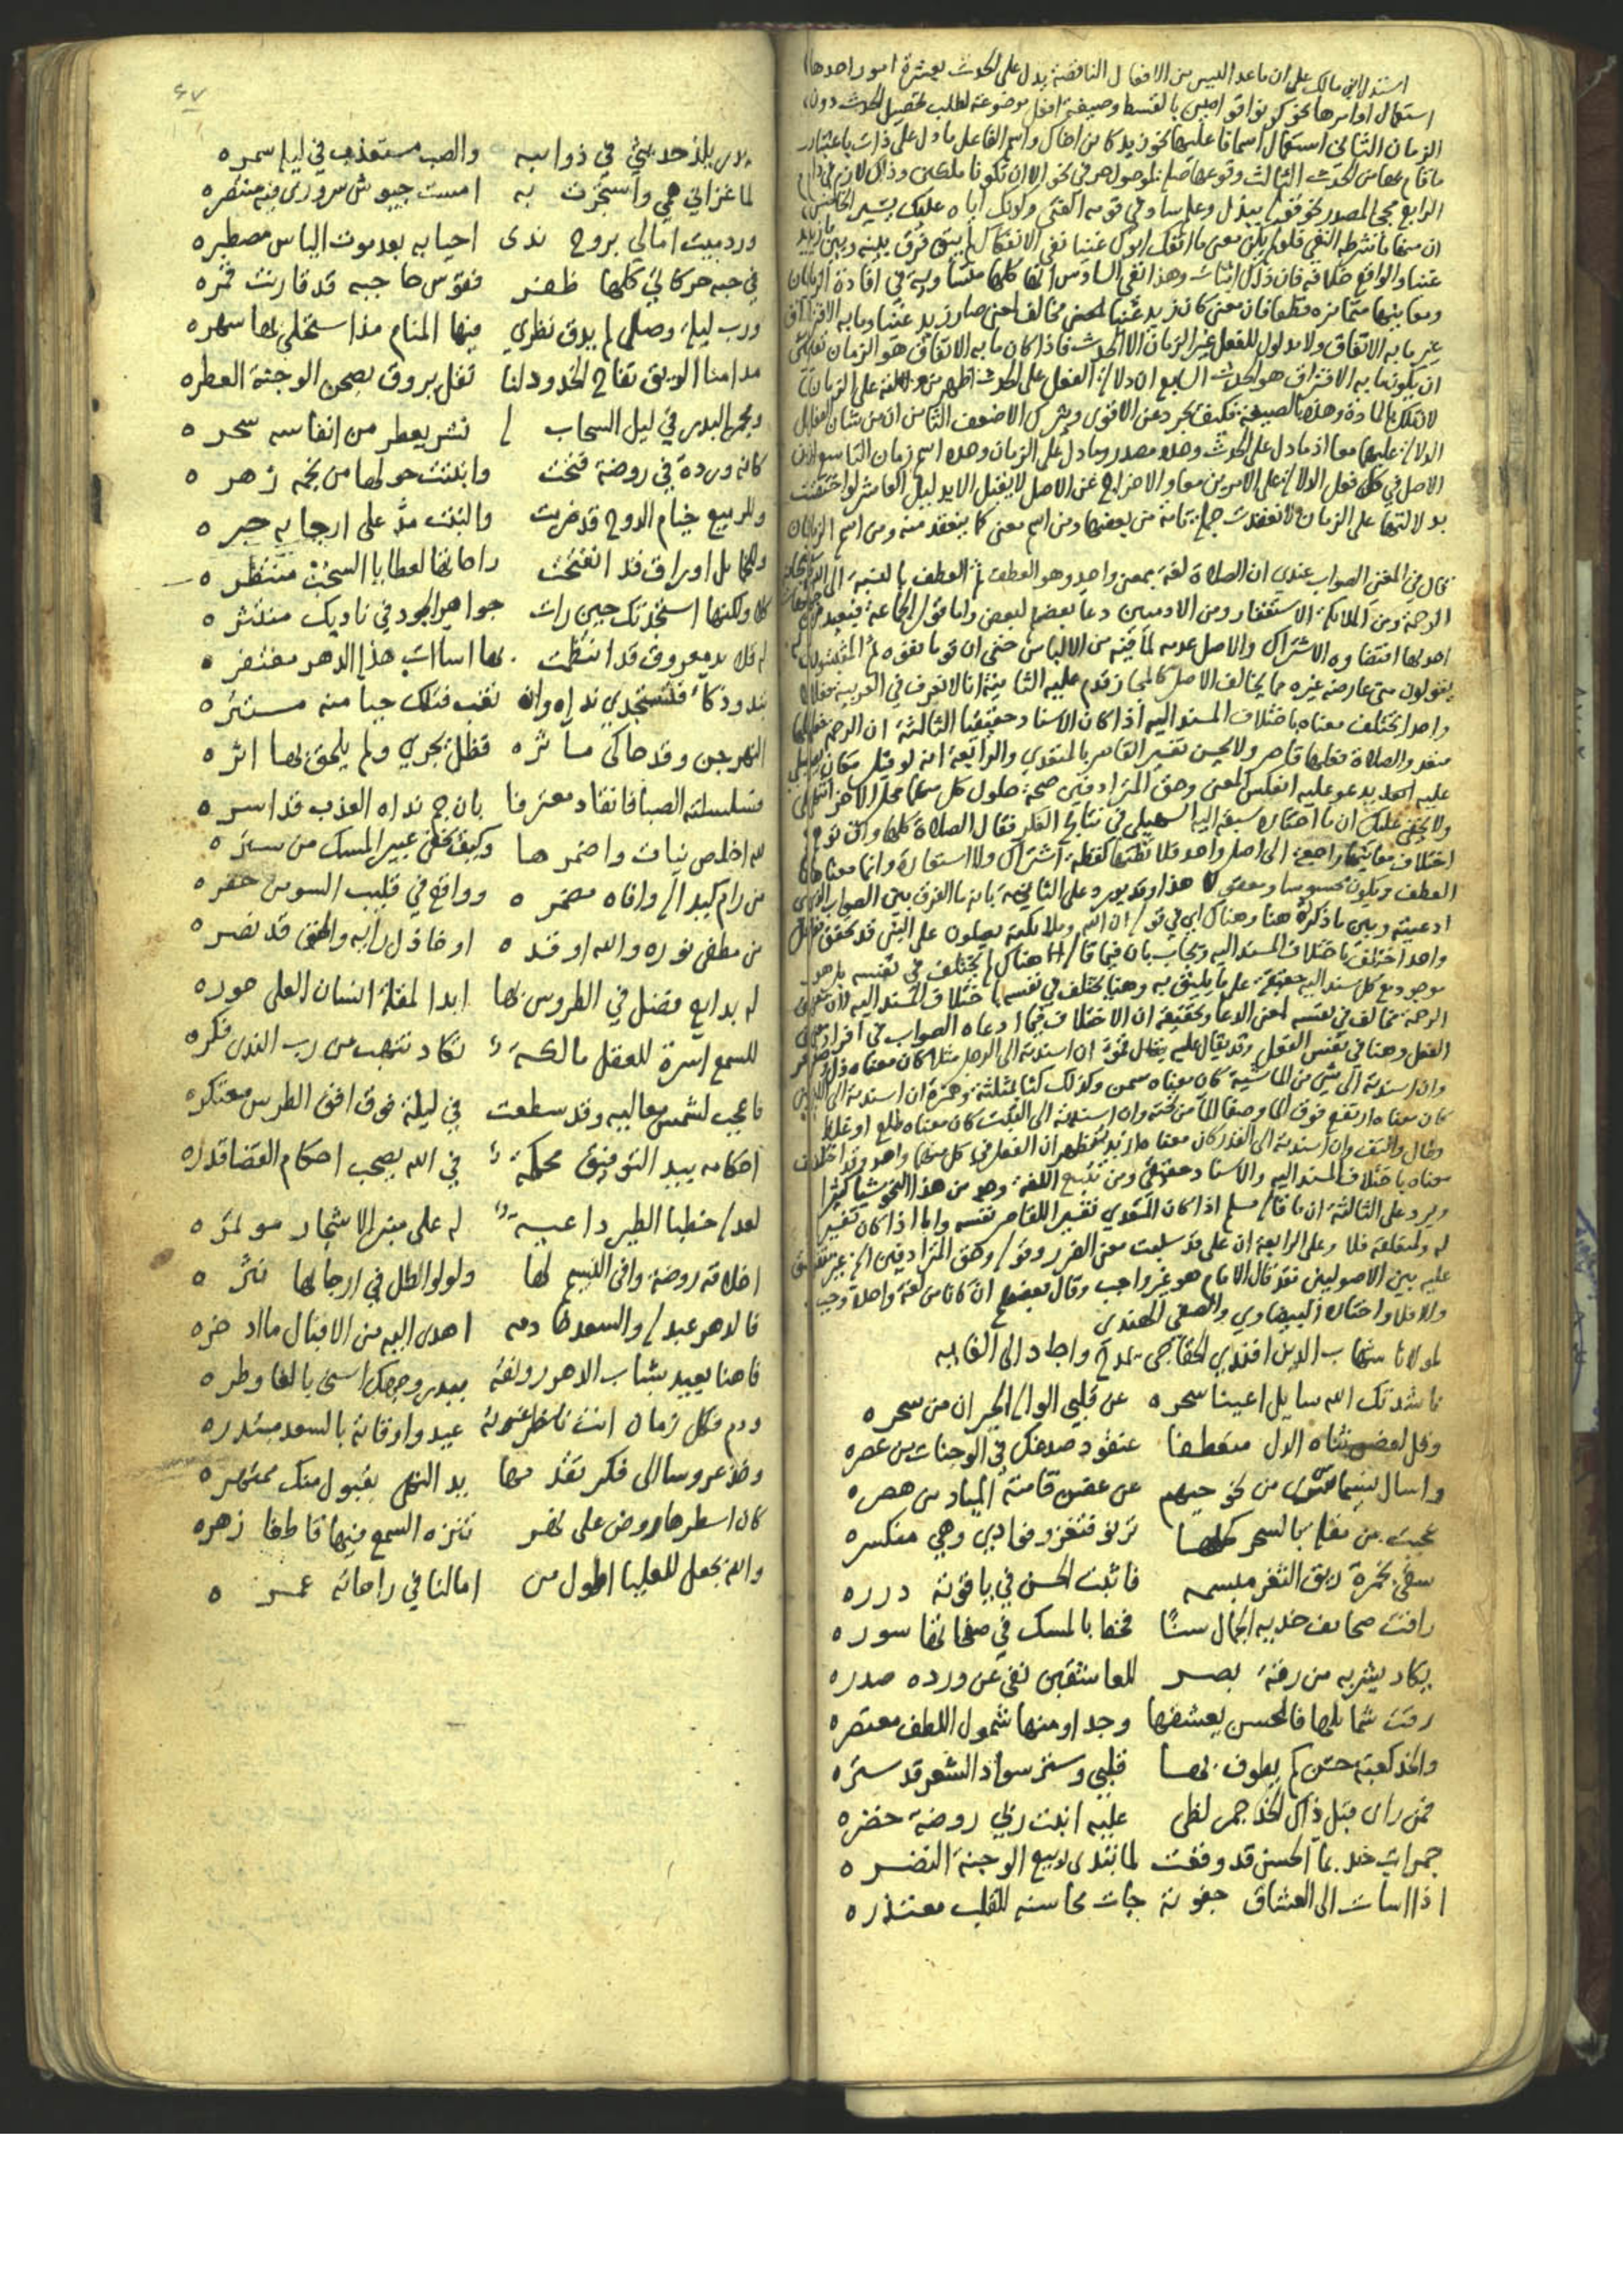 استدل ابن مالك على ان ما عدا ليس من الافعال الناقصة يدل على الحدث بعشرة امور احدها
استعمال اوامرها نحو كونوا قوامين بالقسط وصيغة افعل موضوعة لطلب تحصيل الحدث دون
الزمان الثاني استعمال اسما فاعليها نحو زيد كاين اخاك واسم الفاعل ما دل على ذات باعتبار
ما قام بها من الحدث الثالث وقوعها صلة لموصول حرفي نحو الا ان تكونا ملكين وذلك لازم في
الرابع مجي المصدر نحو قوله ببذل وحلم ساد في قومه الفتى وكونك اياه عليك يسير الخامس
ان منها ما شرطه النفي فلو لم يكن معنى ما انفك الانفكاك لم يبق فرق بينه وبين
والواقع خلافه فان ذلك اثبات وهذا نفي السادس انها كلها متساوية في افادة الزمان
ومعانيها متمايزة قطعا فان معنى كان زيد غنيا مخالف لمعنى صار زيد غنيا وما به الافتراق
غير ما به الاتفاق ولا مدلول للفعل غير الزمان الا الحدث فاذا كان ما به الاتفاق هو الزمان
ان يكون ما به الافتراق هو الحدث السابع ان دلالة الفعل على الحدث اظهر من دلالته على الزمان
لان تلك بالمادة وهذه بالصيغة فكيف يجرد عن الاقوى ويترك الاضعف الثامن ان من شان الفعل
الدلالة عليهما معا اذ ما دل على الحدث وحده مصدر وما دل على الزمان وحده اسم زمان التاسع ان
الاصل في كل فعل الدلالة على الامرين معا والاخراج عن الاصل لا يقبل الا بدليل العاشر لو اختصت
بدلالتها على الزمان لانعقدت جملة تامة من بعضها ومن اسم معنى كما ينعقد منه ومن اسم الزمان
قال في المغني الصواب عندي ان الصلاة لغة بمعنى واحد وهو العطف ثم العطف بالنسبة الى الله
الرحمة ومن الملائكة الاستغفار ومن الادميين دعا بعضهم لبعض واما قول الجماعة فبعيد من
احدها اقتضاوه الاشتراك والاصل عدمه لما فيه من الالباس حتى ان قوما نفوه ثم المثبتون
يقولون متى عارضه غيره مما يخالف الاصل كالمجاز قدم عليه الثانية انا لا نعرف في العربية فعلا
واحدا يختلف معناه باختلاف المسند اليه اذا كان الاسناد حقيقيا الثالثة ان الرحمة فعلها
متعد والصلاة فعلها قاصر ولا يحسن تفسير القاصر بالمتعدي والرابعة انه لو قيل مكان صلى
عليه دعا عليه انعكس المعنى وحق المترادفين صحة حلول كل منهما محل الاخر انتهى
ولا يخفى عليك ان ما اختاره سبقه اليه السهيلي في نتايج الفكر فقال الصلاة كلها وان توهم
اختلاف معانيها راجعة الى اصل واحد فلا تظنها لفظة اشتراك ولا استعارة وانما معناها
العطف ويكون محسوسا ومعقولا هذا وقد يورد على الثانية بانه ما الفرق بين الصواب الذي
ادعيته وبين ما ذكرته هنا وهناك اي في قوله ان الله وملائكته يصلون على النبي قد تحقق فعل
واحد اختلف باختلاف المسند اليه ويجاب بان فيما قاله هناك لم يختلف في نفسه بل هو
موجود مع كل مسند اليه حقيقة على ما يليق به وهنا يختلف في نفسه باختلاف المسند اليه لان معنى
الرحمة مخالف في نفسه لمعنى الدعا وتحقيقه ان الاختلاف فيما ادعاه الصواب في افراد معنى
الفعل وهنا في نفس الفعل وقد يقال عليه ان اسندته الى الرجل مثلا كان معناه
وان اسندته الى شي من الماشية كان معناه سمن وكذلك كثا مثلثة وهمزة ان اسندته الى اللبن
كان معناه ارتفع فوق الما وصفا الما من تحته وان اسندته الى النبت كان معناه طلع او غلظ
وطال والتف وان اسندته الى القدر كان معناه ازبد فظهر ان الفعل في كل منهما واحد وقد اختلف
معناه باختلاف المسند اليه والاسناد حقيقي ومن تتبع اللغة وجد من هذا النحو شيا كثيرا
ويرد على الثالثة ان ما قاله مسلم اذا كان المتعدي تفسيرا للقاصر نفسه واما اذا كان تفسيرا
له ولمتعلقه فلا وعلى الرابعة ان على قد سلبت معنى الضرر وقوله وحق المترادفين الخ غير متفق
عليه بين الاصوليين فقد قال الامام هو غير واجب وقال بعضهم ان كانا من لغة واحدة وجب
والا فلا واختاره البيضاوي والصفي الهندي
لمولانا شهاب الدين افندي الخفاجي يمدح واجاد الى الغايه
ناشدتك الله سايل اعينا سحره عن قلبي الواله الحيران من سحره
وقل لغصن ثناه الدل منعطفا عنقود صدغك في الوجنات من عصره
واسال نسيما سرى من نحو حيهم عن غصن قامته المياد من هصره
عجبت من مقلة بالسحر كلها ترنو فتغزو فوادي وهي منكسره
سقى بخمرة ريق الثغر مبسمه فانبت الحسن في ياقوته درره
راقت صحايف خديه الجمال سنا فخط بالمسك في صفحاتها سوره
يكاد يشربه من رقة بصر للعاشقين نفى عن ورده صدره
رقت شمايلها فالحسن يعشقها وجدا ومنها شمول اللطف معتصره
والخد كعبة حسن كم يطوف بها قلبي وستر سواد الشعر قد ستره
فمن راى قبل ذاك الخد جمر لظى عليه انبت ربي روضة خضره
جمرات خد بما الحسن قد وقفت لما تبدى ربيع الوجنة النضره
اذا اسات الى العشاق جفونه جات محاسنه للقلب معتذره
٤٧
يلذ حديثي في ذوايبه والصب مستعذب في ليله سمره
لما غزاني همي واستجرت به امست جيوش سروري منه منتصره
ورد ميت امالي بروح ندى احيا به بعد موت الياس مصطبره
في حبه حركاتي كلها ظفر فقوس حاجبه قد قارنت قمره
ورب ليلة وصل لم يذق نظري فيها المنام مذ استحلى بها سهره
مدامنا الريق تفاح الخدود لنا نقل يروق بصحن الوجنة العطره
البدر في ليل السحاب نشر يعطر من انفاسه سحره
كانه وردة في روضة فتحت وانبتت حولها من نجمه زهره
وللربيع خيام الدوح قد ضربت والنبت مد على ارجايه حبره
وللخمايل اوراق قد انفتحت راحاتها لعطايا السحب منتظره
كلا ولكنها استجدتك حين رات جواهر الجود في ناديك منتثره
له قلايد معروف قد انتظمت بها اسات هذا الدهر مغتفره
تبدو ذكاء فتستجدي نداه وان تغب فتلك حيا منه مستتره
النهر جن وقد حاكى مآثره فظل يجري ولم يلحق بها اثره
فسلسلته الصبا فانقاد معترفا بان ج نداه العذب قد اسره
لله اخلص نيات واضمرها وكيف يخفى عبير المسك من ستره
من رام كيدا له وافاه مضمره وواقع في قليب السوء من حفره
من مطفي نوره والله اوقده او خاذل رايه والحق قد نصره
له بدايع فضل في الطروس بها ابدا لمقلة انسان العلى حوره
للسمع اسرة للعقل مالكة تكاد تنهب من رب الندى فكره
فاعجب لشمس معاليه وقد سطعت في ليلة فوق افق الطرس معتكره
احكامه بيد التوفيق محكمة في الله يصحب احكام القضا قدره
لعدله خطبا الطير داعية له على منبر الاشجار موتمره
اخلاقه روضة وافى النسيم لها ولولو الطل في ارجايها نثره
فالدهر عبد له والسعد خادمه اهدى اليه من الاقبال ما ادخره
فاهنا بعيد شباب الدهر رونقه ببدر وجهك اسنى بالغا وطره
ودم فكل زمان انت ناظر غرته عيد واوقاته بالسعد مبتدره
وخذ عروسا الى فكر تقدمها يد النهى بقبول منك ممتهره
كان اسطرها روض على نهر تنزه السمع فيها قاطفا زهره
والله يجعل للعليا اطول من امالنا في راحاته عمره